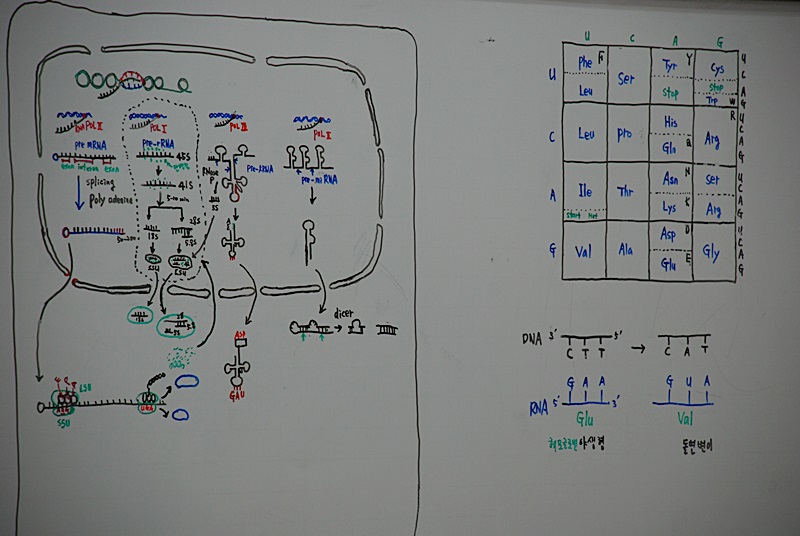 POL II
POL I
POL III
POL II
pre mRNA
pre-rRNA
pre-tRNA
pre-miRNA
45S
41S
RNase
P
5S
splicing
Poly adenine
18S
28S
5.8S
SSU
LSU
dicer
LSU
SSU
AUG
ASP
GAU
U C A G
U
Phe F
Leu
Ser
Tyr Y
stop
Cys
stop
Trp W
U
C
A
G
C
Leu
pro
His
Gln Q
Arg R
U
C
A
G
A
Ile
start Met
Thr
Asn N
Lys K
Ser
Arg
U
C
A
G
G
Val
Ala
Asp D
Glu E
Gly
U
C
A
G
DNA 3' 5' →
C T T C A T
G A A G U A
RNA 5' 3'
Glu Val
야생형 돌연변이